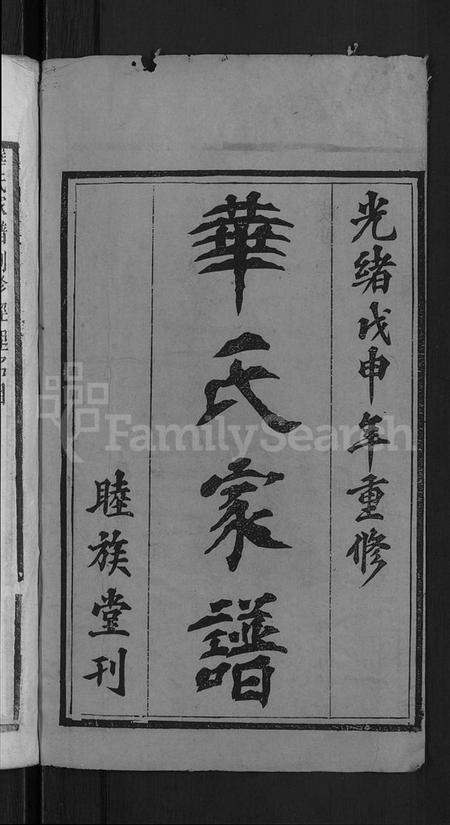 光緒戊申年重修
華氏家譜
睦族堂刊
FamilySearch